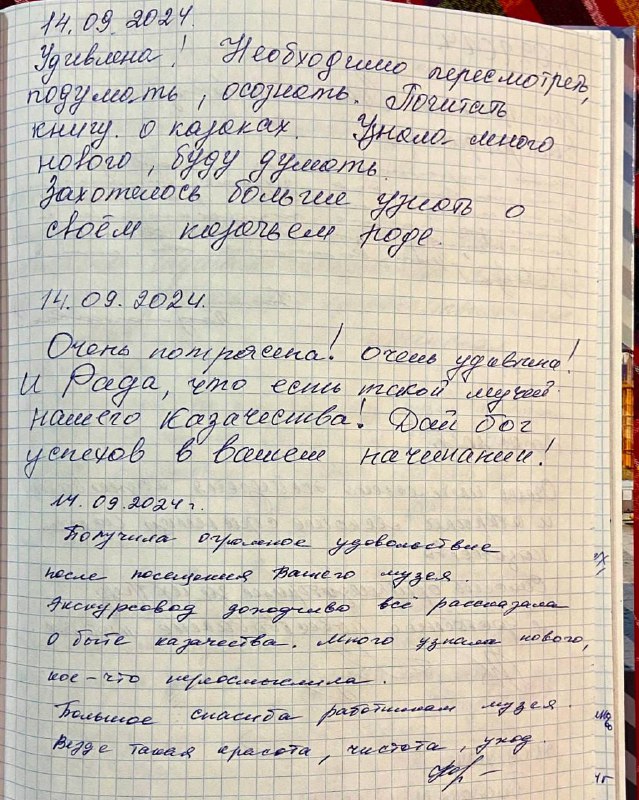 14.09.2024.
Удивлена! Необходимо пересмотреть,
подумать, осознать. Почитать
книгу о казаках. Узнала много
нового, буду думать.
Захотелось больше узнать о
своём казачьем роде.
14.09.2024.
Очень потрясена! Очень удивлена!
И Рада, что есть такой музей
нашего Казачества! Дай бог
успехов в вашем начинании!
14.09.2024г.
Получила огромное удовольствие
после посещения Вашего музея.
Экскурсовод доходчиво всё рассказала
о быте казачества. Много узнала нового,
кое-что переосмыслила.
Большое спасибо работникам музея.
Везде такая красота, чистота, уход.